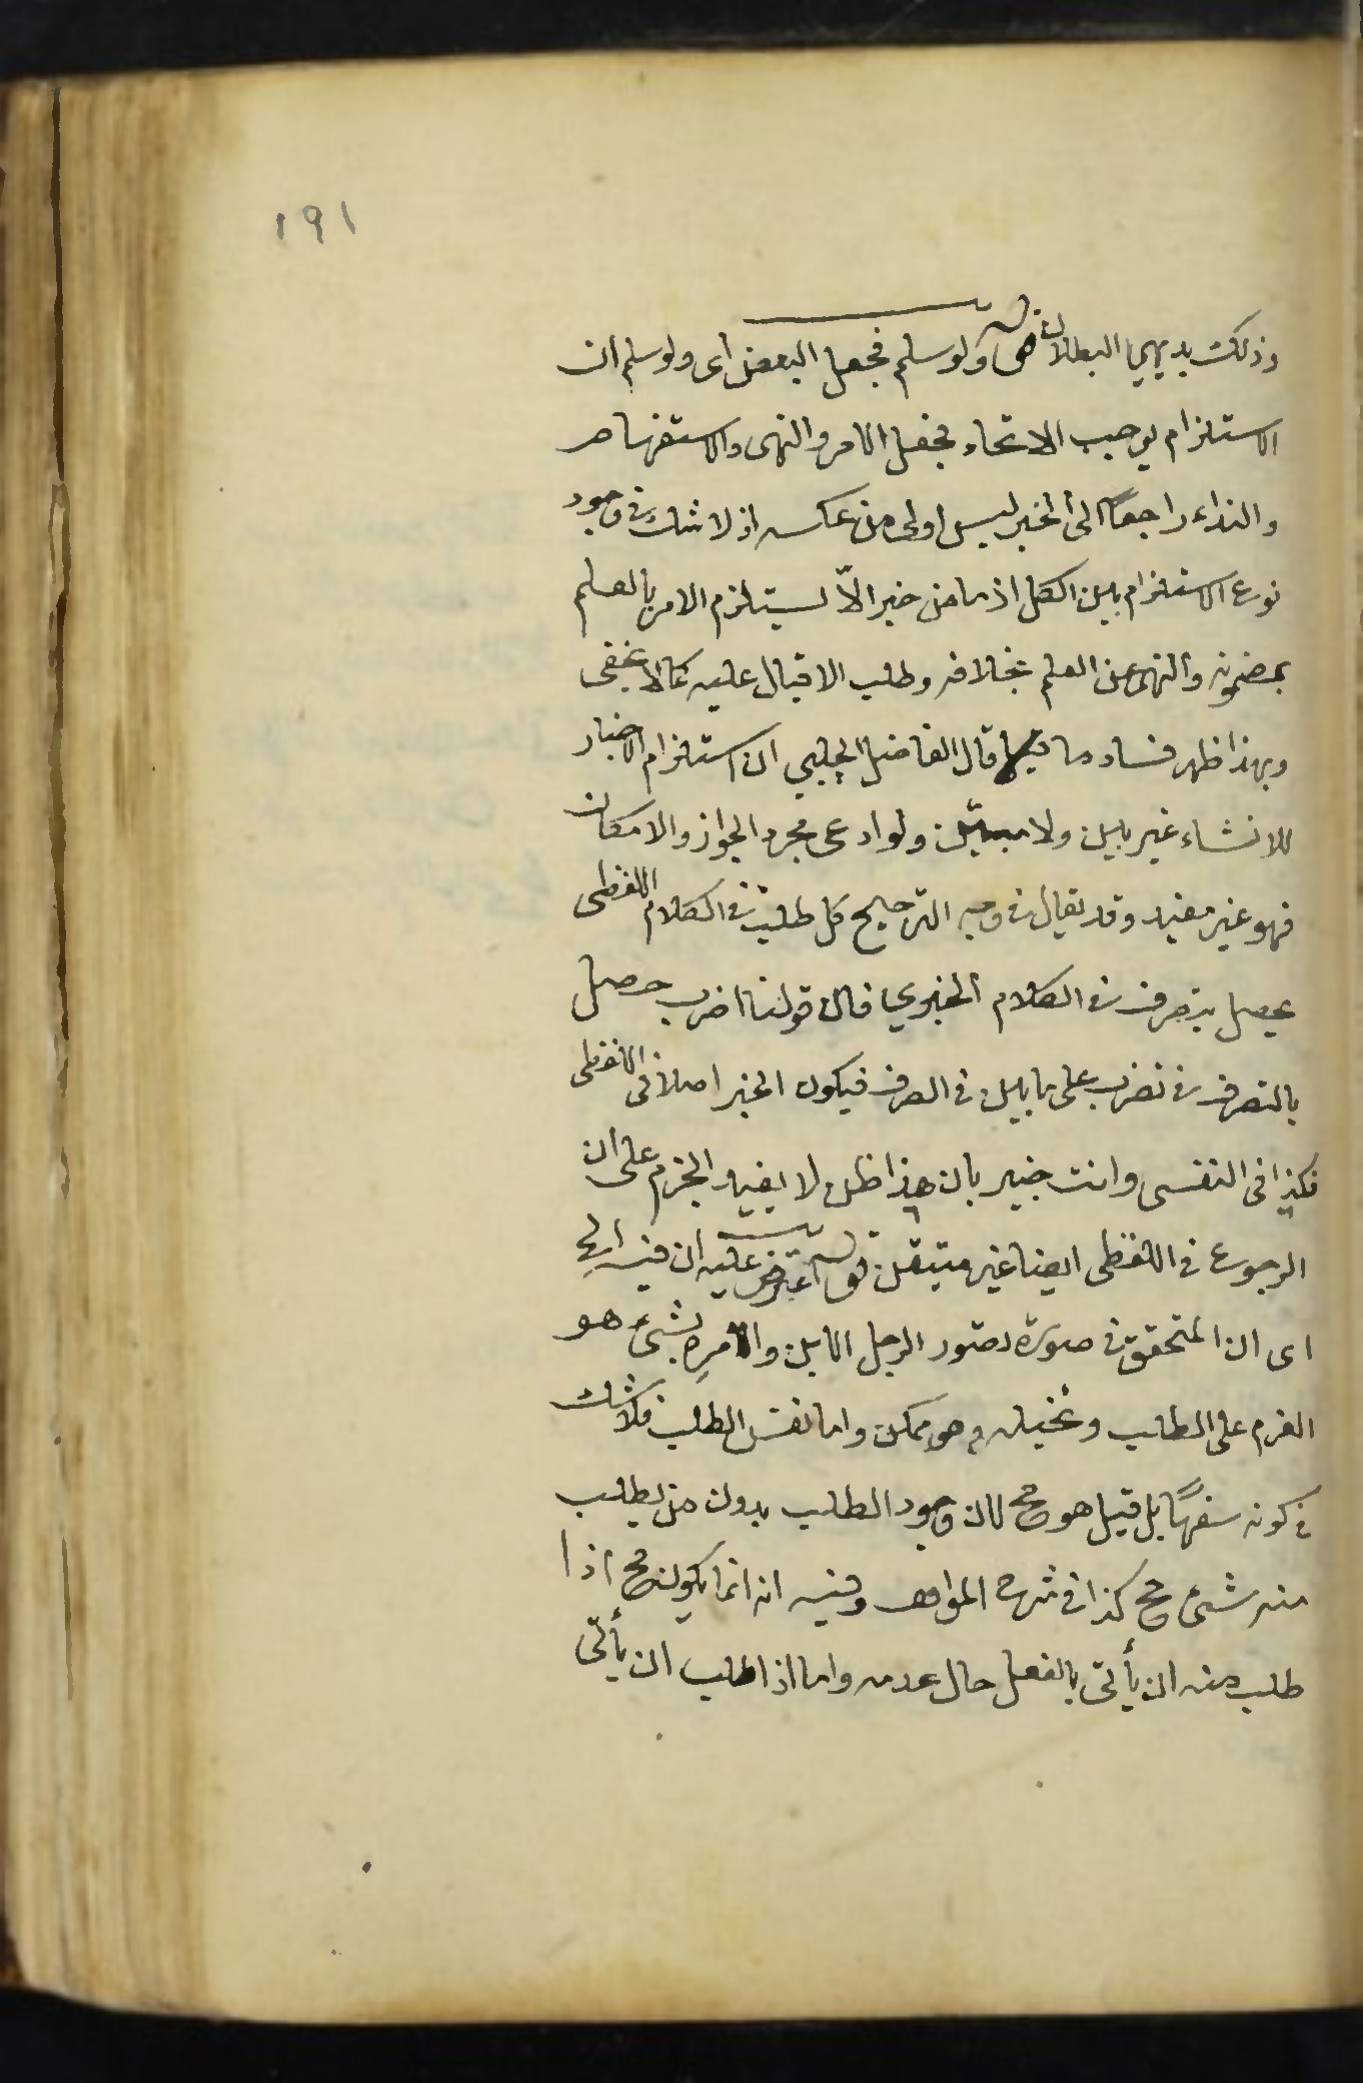 ١٩١
وذلك بديهي البطلان قوله ولو سلم فجعل البعض اى ولو سلم ان
الاستلزام يوجب الاتحاد فجعل الامر والنهى والاستفهام
والنداء راجعاً الى الخبر ليس اولى من عكسه اذ لا شك فى وجود
نوع الاستلزام بين الكل اذ ما من خبر الاّ يستلزم الامر بالعلم
بمضمونه والنهى عن العلم بخلافه وطلب الاقبال عليه كما لا يخفى
وبهذا ظهر فساد ما قال الفاضل الچلبي ان استلزام الاخبار
للانشاء غير بين ولا مبين ولو ادعى مجرد الجواز والامكان
فهو غير مفيد وقد يقال فى وجه الترجيح كل طلب فى الكلام اللفظى
يحصل بتصرف فى الكلام الخبري فان قولنا اضرب حصل
بالتصرف فى تضرب على ما بين فى الصرف فيكون الخبر اصلا فى اللفظى
فكذا فى النفسى وانت خبير بان هذا ظن لا يفيد الجزم على ان
الرجوع فى اللفظى ايضا غير متيقن قوله اعترض عليه ان فيه الخ
اى ان المتحقق فى صورة تصور الرجل الابن والامره بشئ هو
العزم على الطلب وتخيله وهو ممكن واما نفس الطلب فلا شك
فى كونه سفهًا بل قيل هو مح لان وجود الطلب بدون من يطلب
منه شئ مح كذا فى شرح المواقف وفيه انه انما يكون مح اذا
طلب منه ان يأتى بالفعل حال عدمه واما اذا طلب ان يأتى